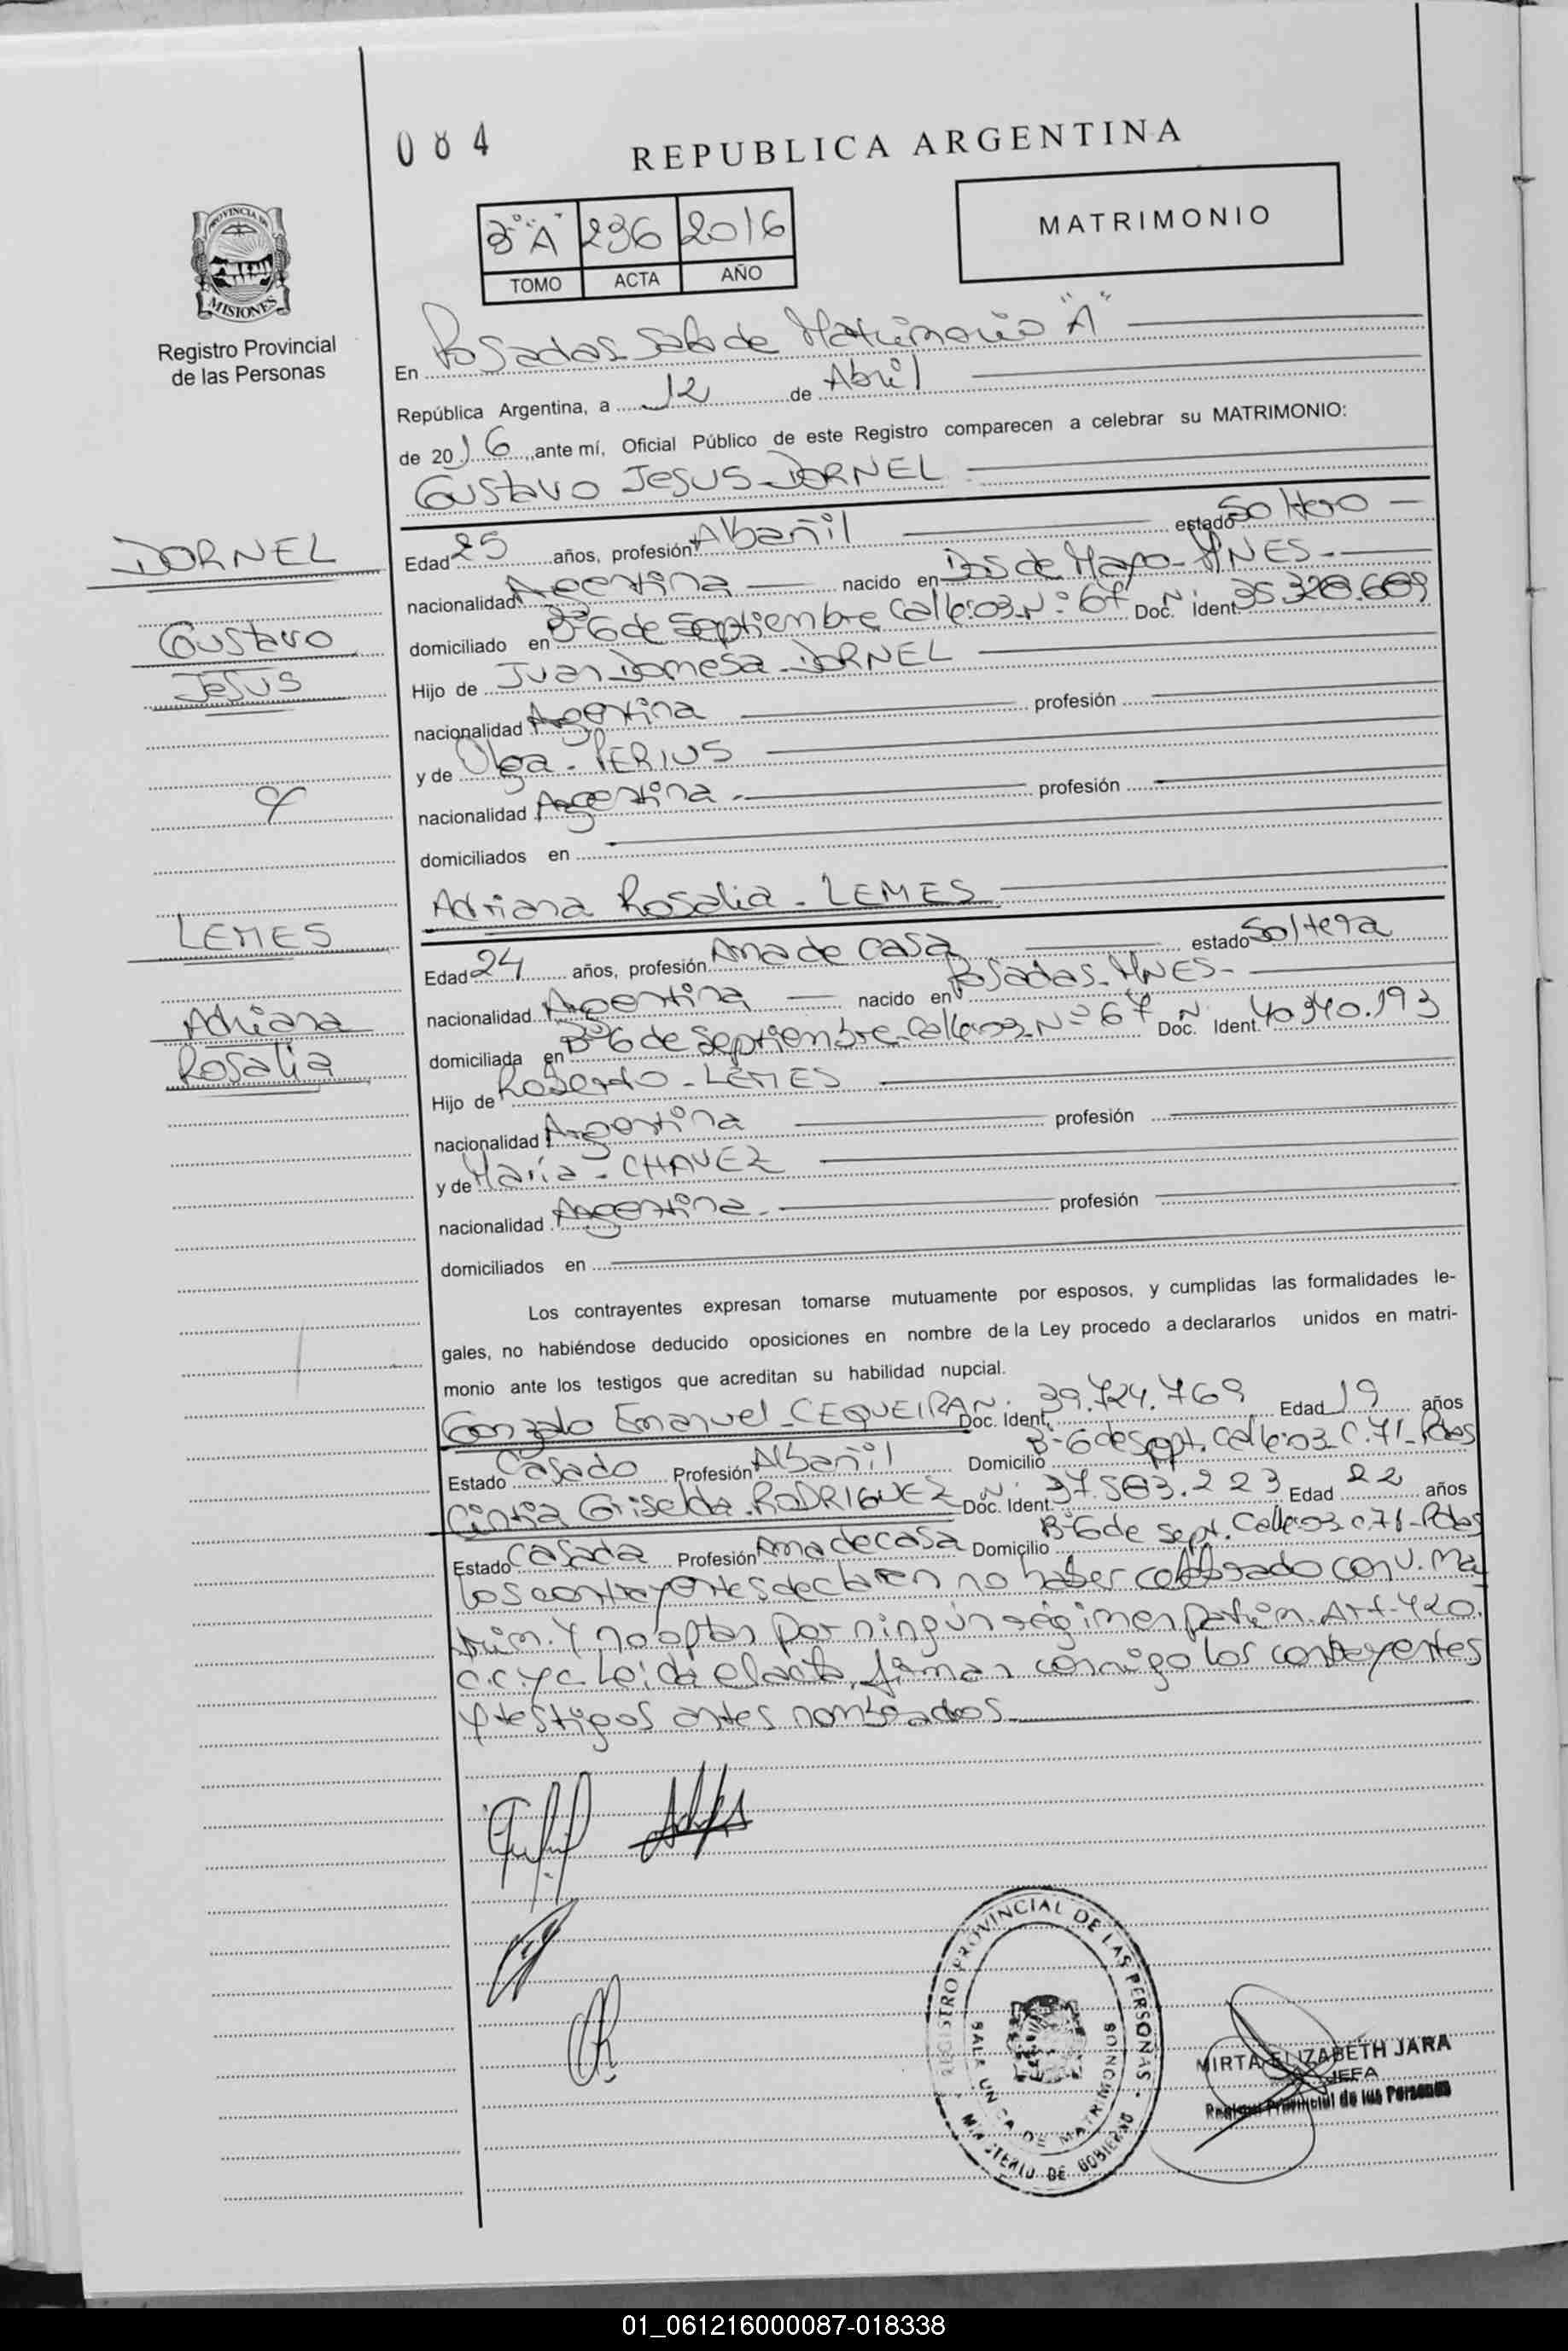 084
REPUBLICA ARGENTINA
PROVINCIA DE
MISIONES
Registro Provincial
de las Personas
3° "A" 236 2016
TOMO ACTA AÑO
MATRIMONIO
En Posadas Sala de Matrimonio "A"
República Argentina, a 12 de Abril
de 2016, ante mí, Oficial Público de este Registro comparecen a celebrar su MATRIMONIO:
Gustavo Jesus DORNEL
DORNEL
Gustavo
Jesus
Edad 25 años, profesión Albañil estado Soltero
nacionalidad Argentina nacido en Dos de Mayo - MNES -
domiciliado en B° 6 de Septiembre Calle: 03 N° 67 Doc. N. Ident. 35.328.609
Hijo de Juan DORNEL
nacionalidad Argentina profesión
y de Olga - PERIUS
nacionalidad Argentina - profesión
domiciliados en
Adriana Rosalia - LEMES
LEMES
Adriana
Rosalia
Edad 24 años, profesión Ama de casa estado Soltera
nacionalidad Argentina nacido en Posadas - MNES -
domiciliada en B° 6 de Septiembre - Calle: 03 N° 67 Doc. N. Ident. 40.340.193
Hijo de Roberto - LEMES
nacionalidad Argentina profesión
y de María - CHAVEZ
nacionalidad Argentina - profesión
domiciliados en
Los contrayentes expresan tomarse mutuamente por esposos, y cumplidas las formalidades le-
gales, no habiéndose deducido oposiciones en nombre de la Ley procedo a declararlos unidos en matri-
monio ante los testigos que acreditan su habilidad nupcial.
Gonzalo Emanuel - CEQUEIRA N. Doc. Ident. 39.724.769 Edad 19 años
Estado Casado Profesión Albañil Domicilio B° 6 de sept. Calle: 03 C. 71 - Pdas
Cintia Griselda - RODRIGUEZ N. Doc. Ident. 37.583.223 Edad 22 años
Estado Casada Profesión Ama de casa Domicilio B° 6 de sept. Calle: 03 c. 71 - Pdas
Los contrayentes declaren no haber celebrado conv. Ma
trim. Y no optan por ningún régimen patrim. Art. 420.
C.C.yC. Leída el acta, firman conmigo los contrayentes
y testigos antes nombrados.
REGISTRO PROVINCIAL DE LAS PERSONAS
SALA UNICA DE MATRIMONIOS
MINISTERIO DE GOBIERNO
MIRTA ELIZABETH JARA
JEFA
Registro Provincial de las Personas
01_061216000087-018338